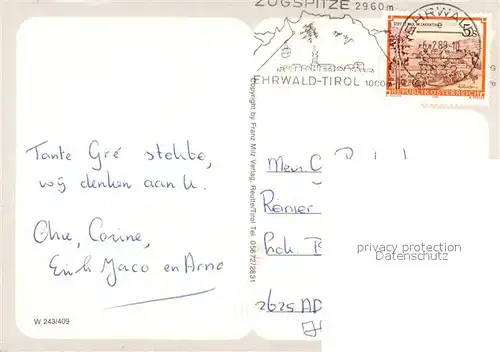 ZUGSPITZE 2960m
EHRWALD-TIROL 1000
EHRWALD
6.-2.89-10
REPUBLIK ÖSTERREICH
Copyright by Franz Milz Verlag, Reutte/Tirol Tel. 05672/2831
Tante Gré
wij denken aan U.
Corine,
Erik Jaco en Arno
W 243/409
Mevr. C
Reinier
2625 AD
privacy protection
Datenschutz